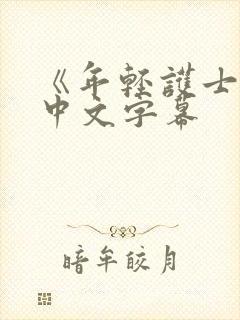 《年轻護士
中文字幕
暗牟皎月